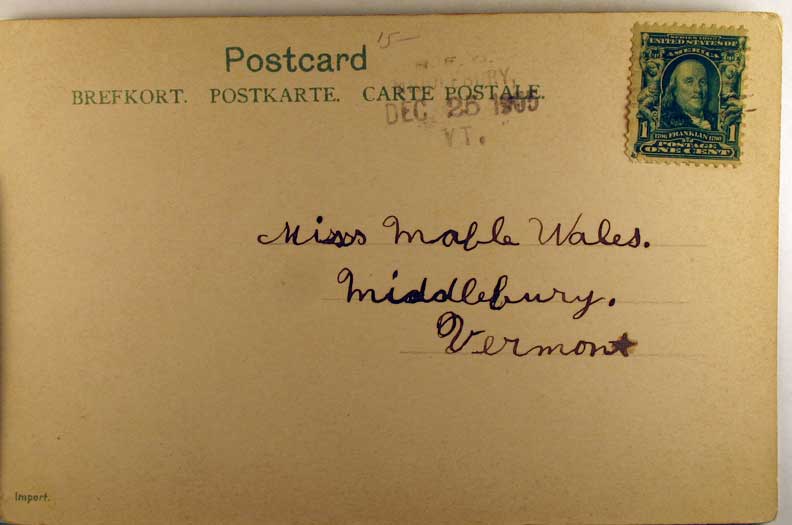 15
Postcard
BREFKORT. POSTKARTE. CARTE POSTALE.
MIDDLEBURY,
DEC 26 1905
VT.
SERIES 1902
UNITED STATES OF
AMERICA
1706 FRANKLIN 1790
1 1
POSTAGE
ONE CENT
Miss Mable Wales.
Middlebury.
Vermont
Import.